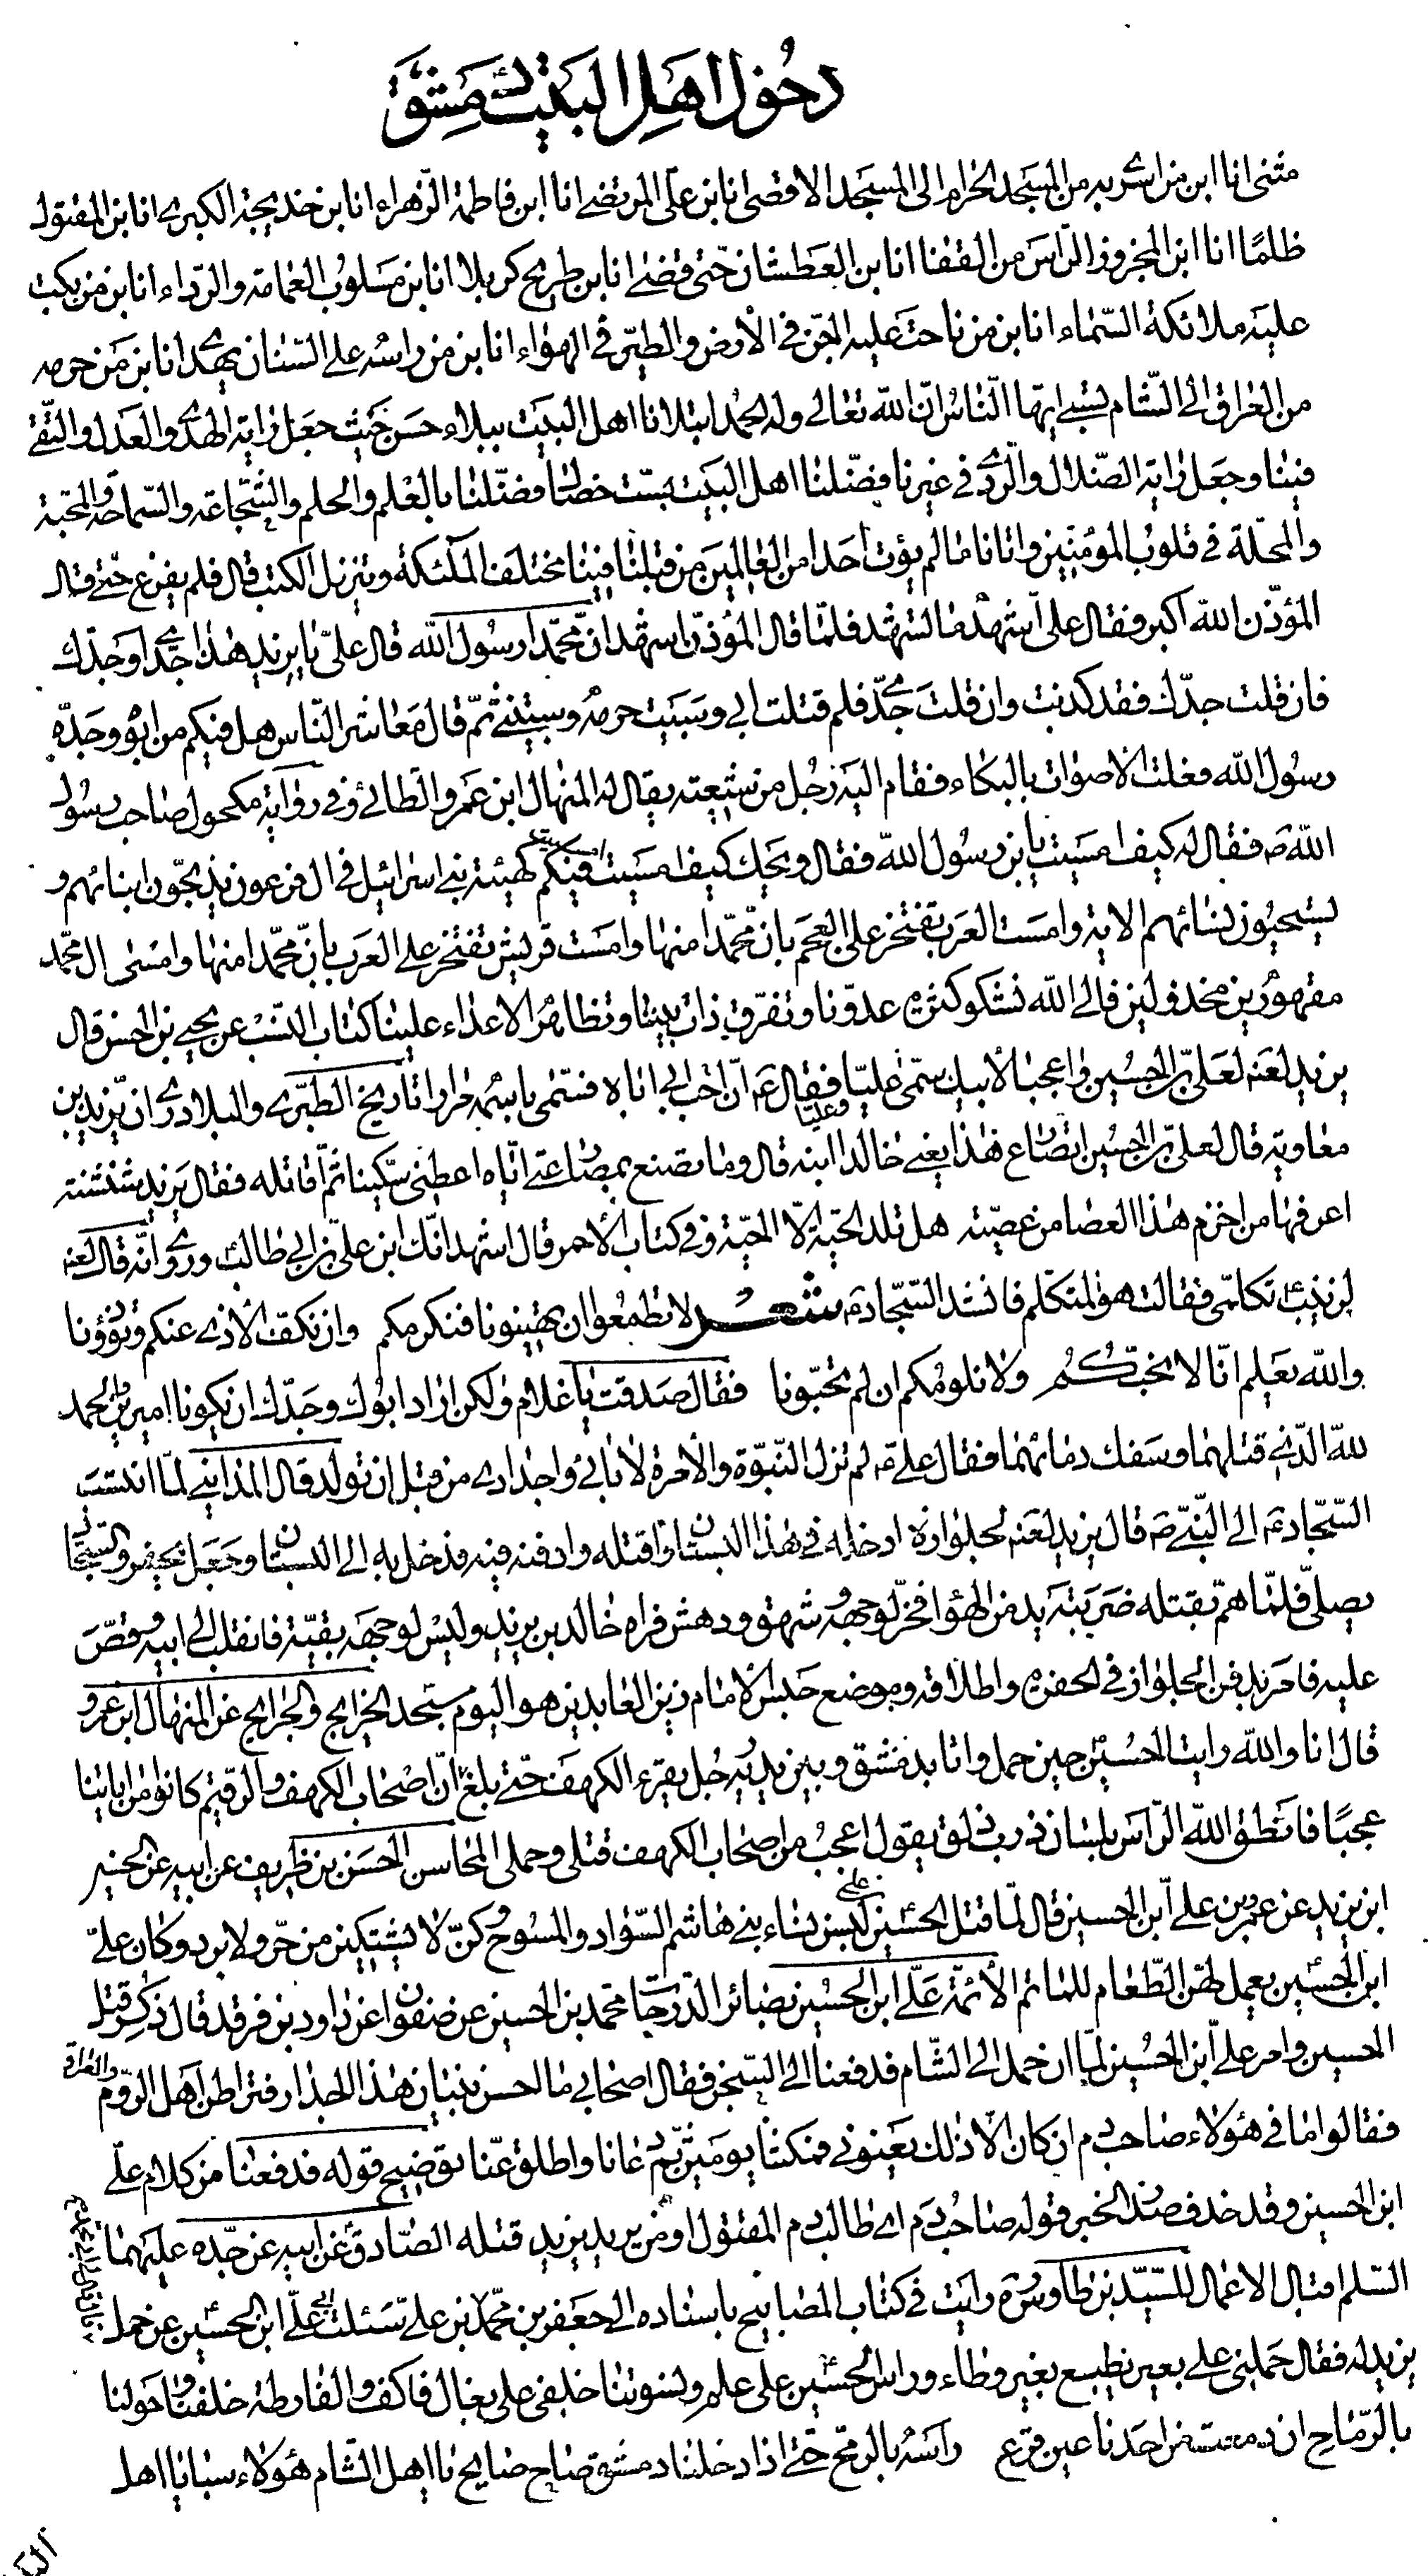 دخول اهل البيت دمشق
مثنى انا ابن من اسرى به من المسجد الحرام الى المسجد الاقصى انا بن على المرتضى انا ابن فاطمة الزهراء انا بن خديجة الكبرى انا بن المقتول
ظلمًا انا ابن المجزوز الراس من القفا انا بن العطشان حتى قضى انا بن طريح كربلا انا بن مسلوب العمامة والرداء انا بن من بكت
عليه ملائكة السماء انا بن من ناحت عليه الجن فى الارض والطير فى الهواء انا بن من راسه على السنان يهدى انا بن من حرمه
من العراق الى الشام تسبى ايها الناس ان الله تعالى وله الحمد ابتلانا اهل البيت ببلاء حسن حيث جعل راية الهدى والعدل والتقى
فينا وجعل راية الضلال والردى فى غيرنا فضلنا اهل البيت بست خصال فضلنا بالعلم والحلم والشجاعة والسماحة والمحبة
والمحلة فى قلوب المؤمنين واتانا ما لم يؤت احدا من العالمين من قبلنا فينا مختلف الملئكة وتنزيل الكتب قال فلم يفرغ حتى قال
المؤذن الله اكبر فقال على اشهد ما تشهد فلما قال المؤذن اشهد ان محمدا رسول الله قال على يا يزيد هذا جدى او جدك
فان قلت جدك فقد كذبت وان قلت جدى فلم قتلت ابى وسبيت حرمه وسبيتنى ثم قال معاشر الناس هل فيكم من ابوه وجده
رسول الله فعلت الاصوات بالبكاء فقام اليه رجل من شيعته يقال له المنهال ابن عمرو الطائى وفى رواية مكحول صاحب رسول
الله ص فقال له كيف امسيت يا بن رسول الله فقال ويحك كيف امسيت امسينا فيكم كهيئة بنى اسرائيل فى ال فرعون يذبحون ابنائهم و
يستحيون نسائهم الاية وامست العرب تفتخر على العجم بان محمدا منها وامست قريش تفتخر على العرب بان محمدا منها وامسى ال محمد
مقهورين مخذولين فالى الله نشكو كثرة عدونا وتفرق ذات بيننا وتظاهر الاعداء علينا كتاب النسب عن يحيى بن الحسن قال
يزيد لعنه لعلى بن الحسين واعجبا لابيك سمى عليا وعليا فقال ع ان ابى احب اباه فسمى باسمه مرارا تاريخ الطبرى والبلادرى ان يزيد بن
معاوية قال لعلى بن الحسين اتصارع هذا يعنى خالدا ابنه قال وما تصنع بمصارعتى اياه اعطنى سكينا ثم اقاتله فقال يزيد شنشنة
اعرفها من اخزم هذا العصا من عصية هل تلد الحية الا الحية وفى كتاب الاحمر قال اشهد انك ابن على بن ابى طالب وروى انه قال لعنه
لزينب تكلمى فقالت هو المتكلم فانشد السجاد ع شعر لا تطمعوا ان تهينونا فنكرمكم وان نكف الاذى عنكم وتؤذونا
والله يعلم انا لا نحبكم ولا نلومكم ان لم تحبونا فقال صدقت يا غلام ولكن اراد ابوك وجدك ان يكونا اميرين والحمد
لله الذى قتلهما وسفك دمائهما فقال على ع لم تزل النبوة والامرة لابائى واجدادى من قبل ان تولد قال المداينى لما انتسب
السجاد ع الى النبى ص قال يزيد لعنه لجلوازه ادخله فى هذا البستان واقتله وادفنه فيه فدخل به الى البستان وجعل يحفر والسجاد
يصلى فلما هم بقتله ضربته يد من الهواء فخر لوجهه وشهق ودهش فراه خالد بن يزيد وليس لوجهه بقية فانقلب الى ابيه وقص
عليه فامر بدفن الجلواز فى الحفرة واطلاقه وموضع حبس الامام زين العابدين هو اليوم مسجد الخرايج والجرايح عن المنهال ابن عمرو
قال انا والله رايت الحسين حين حمل وانا بدمشق وبين يديه رجل يقرء الكهف حتى بلغ ان اصحاب الكهف والرقيم كانوا من اياتنا
عجبًا فانطق الله الراس بلسان ذرب ذلق يقول اعجب من اصحاب الكهف قتلى وحملى المحاسن الحسن بن ظريف عن ابيه عن الحسين
ابن يزيد عن عمر بن على ابن الحسين قال لما قتل الحسين بن على لبس نساء بنى هاشم السواد والمسوح وكن لا يشتكين من حر ولا برد وكان على
ابن الحسين يعمل لهن الطعام للماتم الائمة على ابن الحسين بصائر الدرجات محمد بن الحسين عن صفوان عن داود بن فرقد قال ذكر قتل
الحسين وامر على ابن الحسين لما ان حمل الى الشام فدفعنا الى السجن فقال اصحابى ما احسن بنيان هذا الجدار فتراطن اهل الروم
فقالوا ما فى هؤلاء صاحب دم ان كان الا ذلك يعنونى فمكثنا يومين ثم دعانا واطلق عنا توضيح قوله فدفعنا من كلام على
ابن الحسين وقد حذف صدر الخبر قوله صاحب دم اى طالب دم المقتول او من يريد يزيد قتله الصادق عن ابيه عن جده عليهما
السلم اقبال الاعمال للسيد بن طاوس ره رايت فى كتاب المصابيح باسناده الى جعفر بن محمد بن على سئلت ابى على ابن الحسين عن حمل
يزيد له فقال حملنى على بعير يظلع بغير وطاء وراس الحسين على علم ونسوتنا خلفى على بغال فاكف والفارطة خلفنا وحولنا
بالرماح ان دمعت من احدنا عين قرع راسه بالرمح حتى اذا دخلنا دمشق صاح صايح يا اهل الشام هؤلاء سبايا اهل